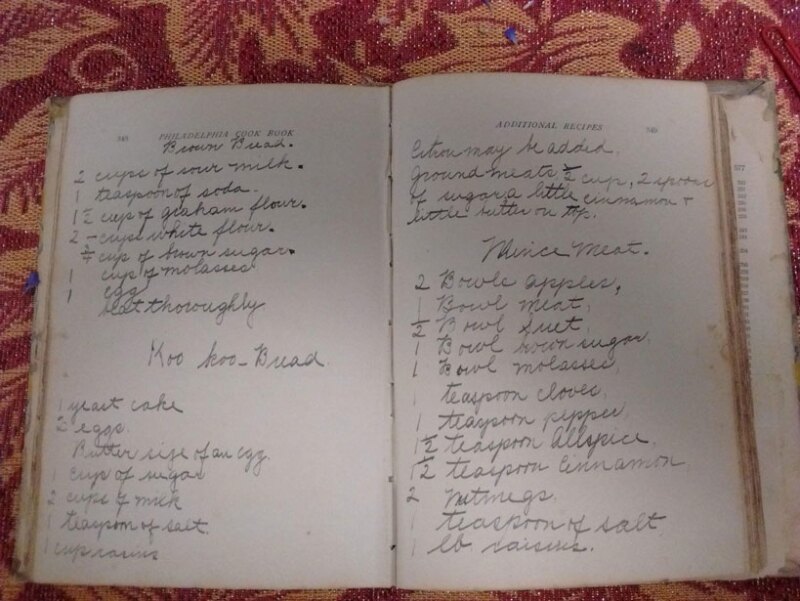 348 PHILADELPHIA COOK BOOK
Brown Bread.
2 cups of sour milk.
1 teaspoon of soda.
1 1/2 cup of graham flour.
2 - cups white flour.
cup of brown sugar.
1 cup of molasses
1 egg
beat thoroughly
Koo koo - Bread
1 yeast cake
2 eggs.
Butter size of an egg.
1 cup of sugar
2 cups of milk
1 teaspoon of salt.
1 cup rasins
ADDITIONAL RECIPES 349
Citron may be added.
Ground meats 1/2 cup, 2 spoons
of sugar a little cinnamon +
little butter on top.
Mince Meat.
2 Bowls apples,
1 Bowl meat,
1/2 Bowl suet,
1 Bowl brown sugar,
1 Bowl molasses,
1 teaspoon cloves,
1 teaspoon pepper,
1 1/2 teaspoon Allspice,
1 1/2 teaspoon Cinnamon
2 Nutmegs
1 teaspoon of salt,
1 lb. raisins.
577